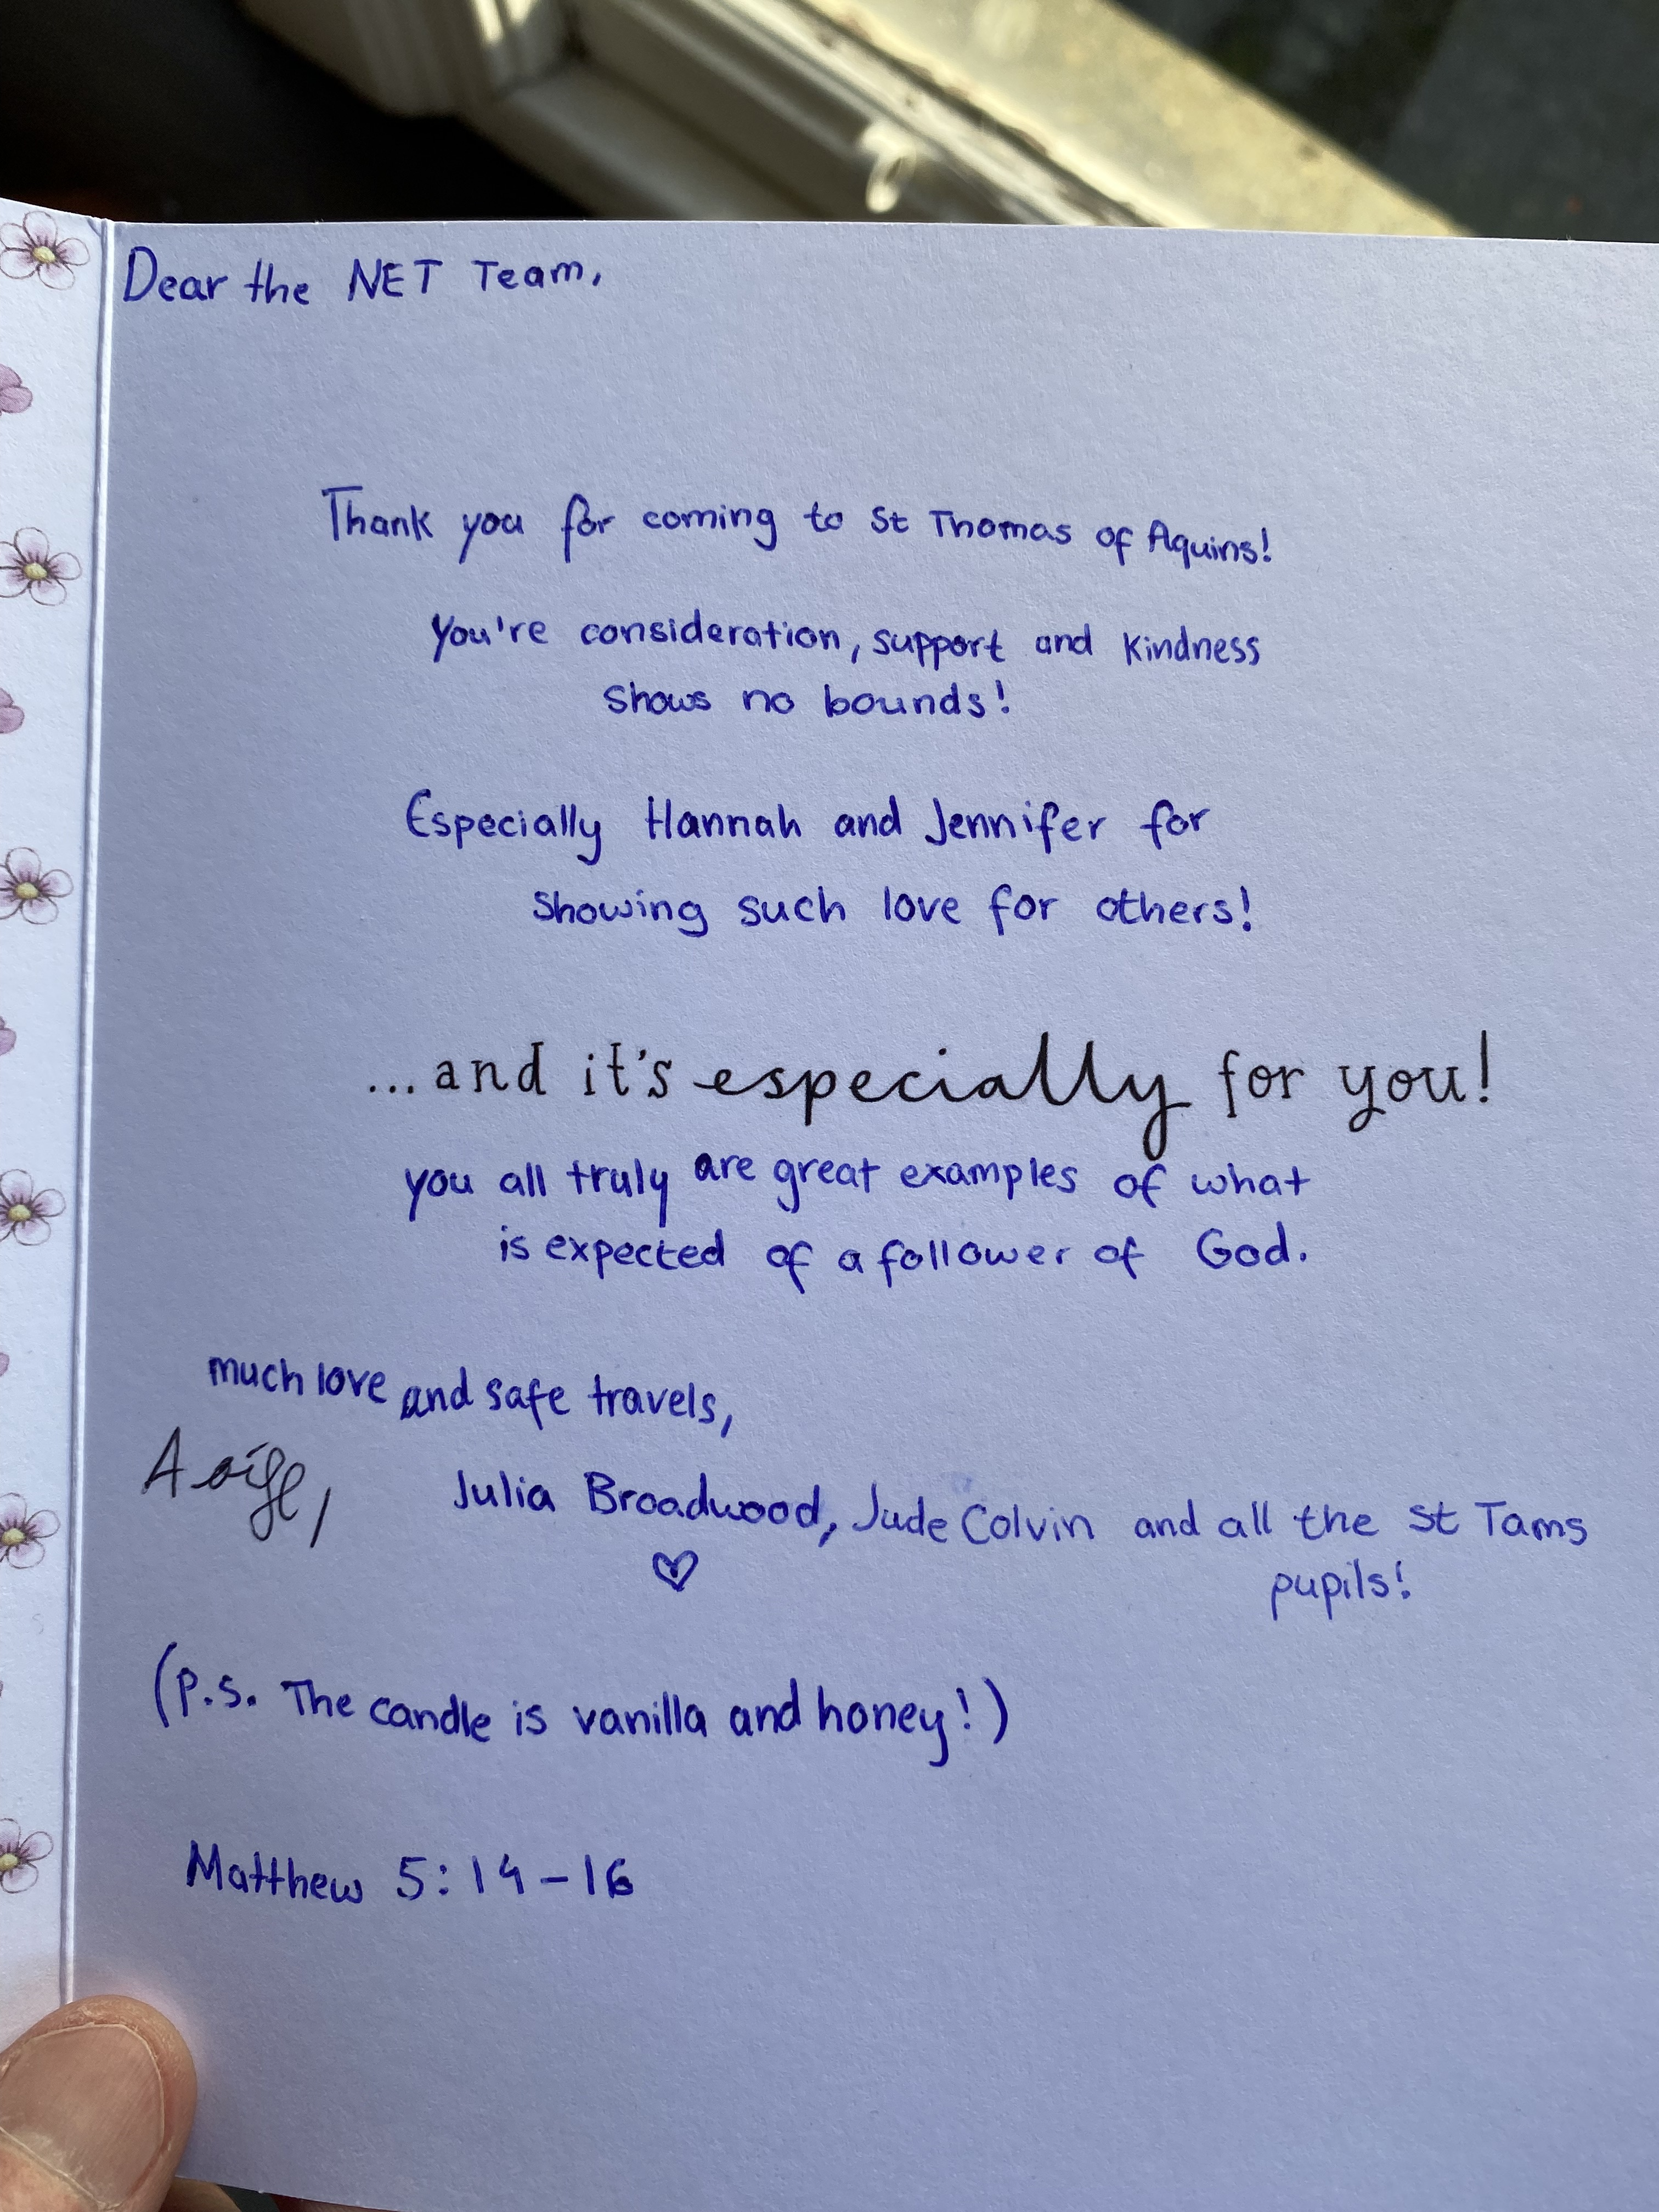 Dear the NET Team,
Thank you for coming to St Thomas of Aquins!
You're consideration, support and kindness
shows no bounds!
Especially Hannah and Jennifer for
showing such love for others!
...and it's especially for you!
you all truly are great examples of what
is expected of a follower of God.
much love and safe travels,
Aoife, Julia Broadwood, Jude Colvin and all the St Tams
pupils!
(P.S. The candle is vanilla and honey!)
Matthew 5:14-16